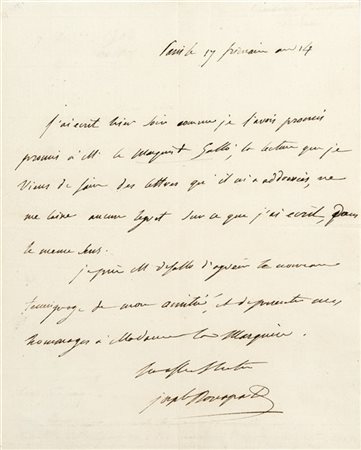 Paris le 17 frimaire an 14
j'ai écrit hier soir comme je l'avois promis
promis à M. le Marquis de Gallo, la lecture que je
viens de faire des lettres qu'il m'a addressées, ne
me laisse aucun regret sur ce que j'ai écrit, dans
le meme sens.
je prie M de Gallo d'agréer le nouveau
temoignage de mon amitié, et de presenter mes
hommages à Madame la Marquise.
joseph Bonaparte